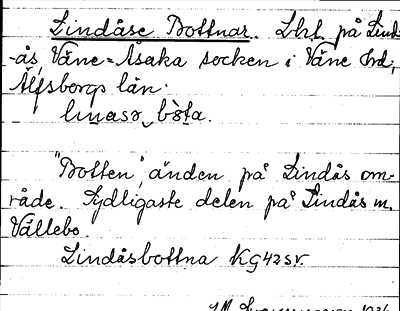 Lindåse Bottnar. Lht. på Lind-
-ås, Väne-Åsaka socken i Väne Hrd;
Älfsborgs län.
"Botten", änden på Lindås om-
råde. Sydligaste delen på Lindås m.
Vällebo.
Lindåsbottna KG42sv.